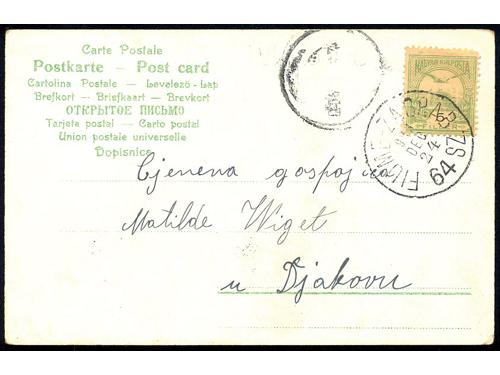 Carte Postale
Postkarte – Post card
Cartolina Postale – Levelező-Lap
Brefkort – Briefkaart – Brevkort
ОТКРЫТОЕ ПИСЬМО
Tarjeta postal – Carto postel
Union postale universelle
Dopisnica
MAGYAR KIR. POSTA
FIUME-ZÁGRÁB
DEC
24
64
Cjenena gospojica
Matilde Wiget
u Djakovu